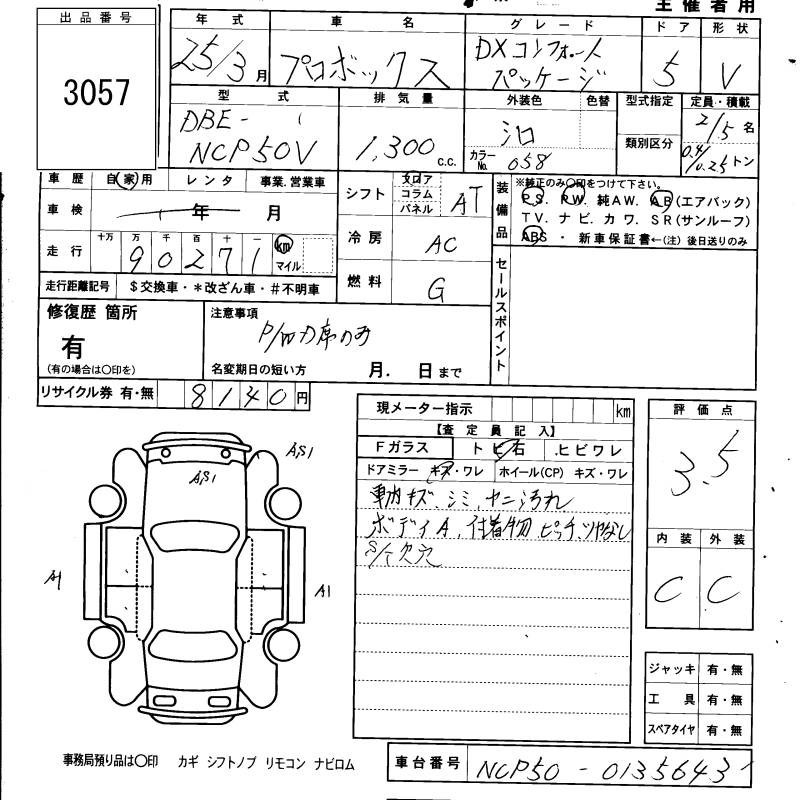 主催者用
出品番号
3057
年式 車名 グレード ドア 形状
25/3月 プロボックス DXコンフォート
パッケージ 5 V
型式 排気量 外装色 色替 型式指定 定員・積載
DBE-
NCP50V 1,300 c.c. カラーNo. 058 類別区分 2/5名
0.4/0.25トン
車歴 自家用 レンタ 事業.営業車
車検 年 月
走行 十万 万 千 百 十 一 km マイル
90271
走行距離記号 $交換車・*改ざん車・#不明車
シフト フロア コラム パネル AT
冷房 AC
燃料 G
装備品 ※純正のみ○印をつけて下さい。
P S. P W. 純AW. A B(エアバック)
T V. ナ ビ. カ ワ. S R(サンルーフ)
ABS・新車保証書←(注) 後日送りのみ
セールスポイント
修復歴 箇所
有
(有の場合は○印を)
注意事項
P/W 力席のみ
名変期日の短い方 月. 日まで
リサイクル券 有・無 8140円
現メーター指示 km
【査定員記入】
Fガラス トビ石 .ヒビワレ
ドアミラー キズ・ワレ ホイール(CP) キズ・ワレ
車内キズ、シミ、ヤニ汚れ
ボディA、付着物、ピッチ、ツヤなし
S/T欠穴
評価点
3.5
内装 外装
C C
A,S1
A,S1
A1
A1
ジャッキ 有・無
工具 有・無
スペアタイヤ 有・無
事務局預り品は○印 カギ シフトノブ リモコン ナビロム
車台番号 NCP50-0135643